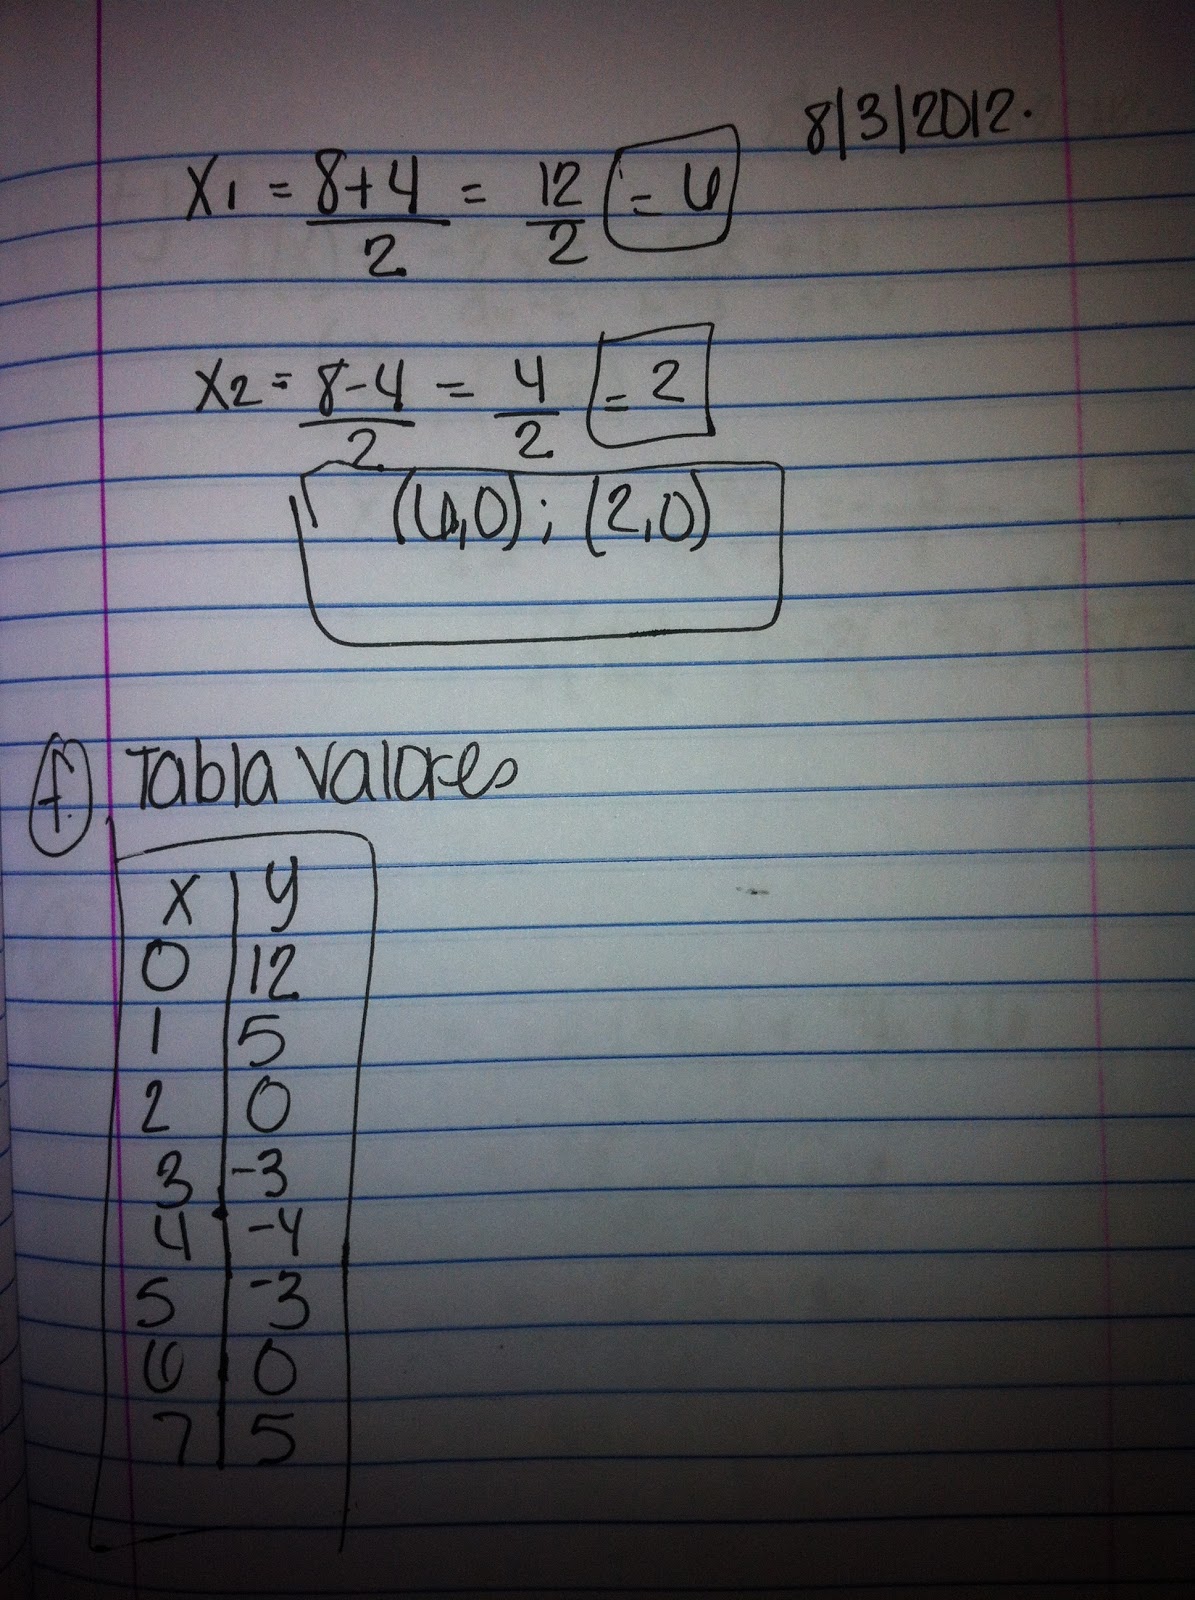 8/3/2012.
X1 = 8+4/2 = 12/2 = 6
X2 = 8-4/2 = 4/2 = 2
(6,0) ; (2,0)
f. Tabla valores
x | y
0 | 12
1 | 5
2 | 0
3 | -3
4 | -4
5 | -3
6 | 0
7 | 5